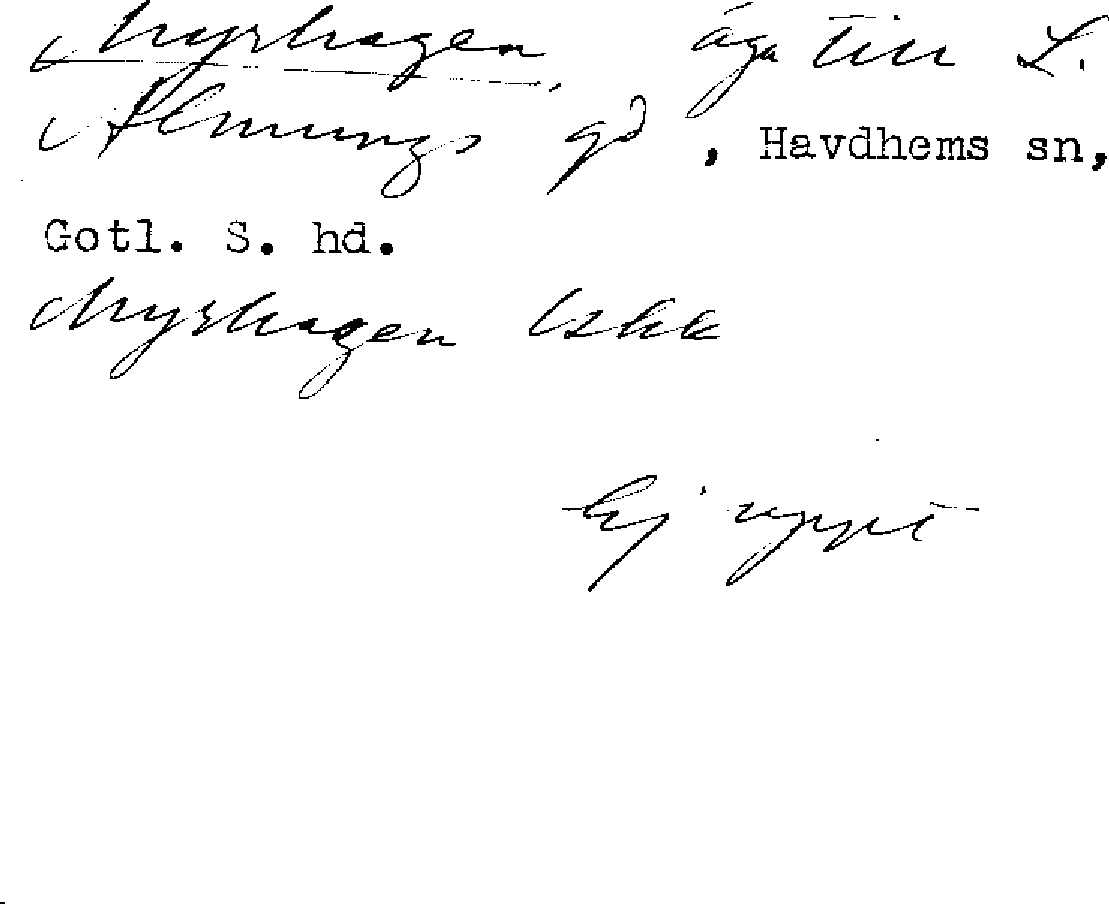 Myrhagen, äga till L.
Almungs gd, Havdhems sn,
Gotl. S. hd.
Myrhagen
Ej uppt